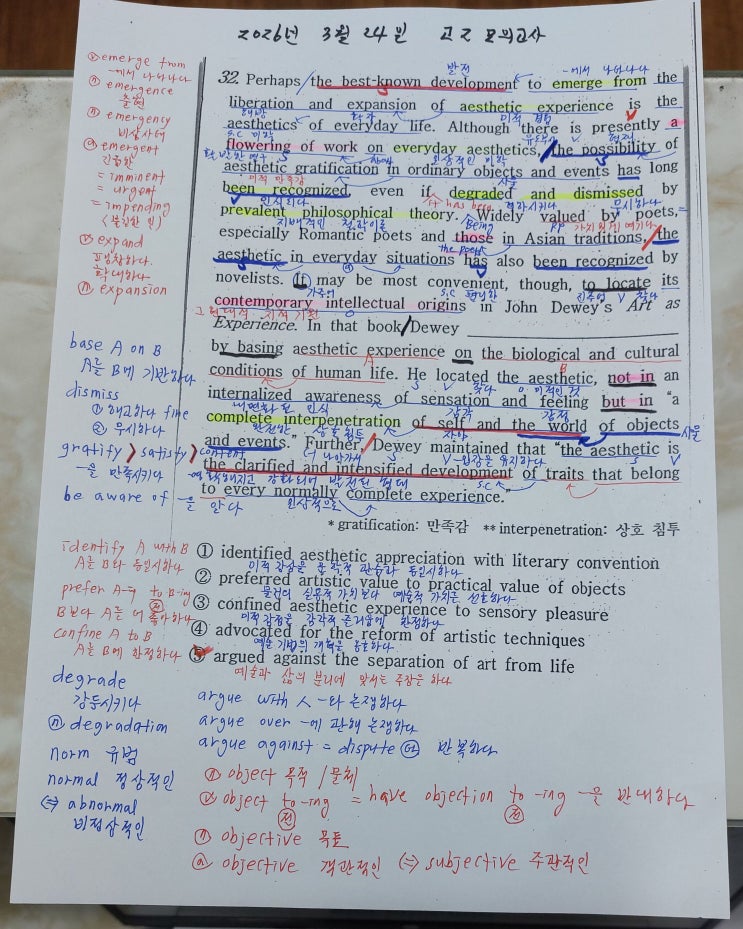 2026년 3월 24일 고2 모의고사
ⓥ emerge from
-에서 나타나다
ⓝ emergence
출현
ⓝ emergency
비상사태
ⓐ emergent
긴급한
= imminent
= urgent
= impending
(불길한 일)
ⓥ expand
팽창하다.
확대하다.
ⓝ expansion
base A on B
A를 B에 기반하다
dismiss
① 해고하다 fire
② 무시하다
gratify > satisfy > content
-을 만족시키다
be aware of -을 알다
발전 -에서 나타나다
32. Perhaps the best-known development to emerge from the
liberation and expansion of aesthetic experience is the
해방 확장 미적 경험
aesthetics of everyday life. Although there is presently a
S.C 미학 유도부사 V 현재
flowering of work on everyday aesthetics, the possibility of
S 일상적인 미학
aesthetic gratification in ordinary objects and events has long
미적 만족감 사물
been recognized, even if degraded and dismissed by
인식되다 it has been 격하시키다 무시하다
prevalent philosophical theory. Widely valued by poets,
지배적인 철학이론 Being PP 가치있게 여기다
especially Romantic poets and those in Asian traditions, the
the poets
aesthetic in everyday situations has also been recognized by
novelists. It may be most convenient, though, to locate its
가주어 S.C 편리한 진주어 V 찾다
contemporary intellectual origins in John Dewey's Art as
그 현대적 지적 기원 O
Experience. In that book Dewey
by basing aesthetic experience on the biological and cultural
A B
conditions of human life. He located the aesthetic, not in an
S V 찾다 O 미적인 것
internalized awareness of sensation and feeling but in "a
내면화된 인식 감각 감정
complete interpenetration of self and the world of objects
완전한 상호침투 자아 사물
and events." Further, Dewey maintained that "the aesthetic is
더 나아가서 S V-입장을 유지하다 S V
the clarified and intensified development of traits that belong
명확해지고 강화되어 발전된 형태 S.C
to every normally complete experience."
일상적으로
* gratification: 만족감 ** interpenetration: 상호 침투
identify A with B
A를 B와 동일시하다
prefer A-ing to B-ing
전
B보다 A를 더 좋아하다
confine A to B
A를 B에 한정하다
① identified aesthetic appreciation with literary convention
미적 감상을 문학적 관습과 동일시하다
② preferred artistic value to practical value of objects
물건의 실용적 가치보다 예술적 가치를 선호하다.
③ confined aesthetic experience to sensory pleasure
미적 감정을 감각적 즐거움에 한정하다
④ advocated for the reform of artistic techniques
예술 기법의 개혁을 옹호하다
⑤ argued against the separation of art from life
예술과 삶의 분리에 맞서는 주장을 하다
degrade
강등시키다
ⓝ degradation
norm 규범
normal 정상적인
⇔ abnormal
비정상적인
argue with 人 -와 논쟁하다
argue over -에 관해 논쟁하다
argue against = dispute 반복하다
ⓝ object 목적 / 물체
ⓥ object to -ing = have objection to -ing -을 반대하다
전 전
ⓝ objective 목표
ⓐ objective 객관적인 ⇔ subjective 주관적인